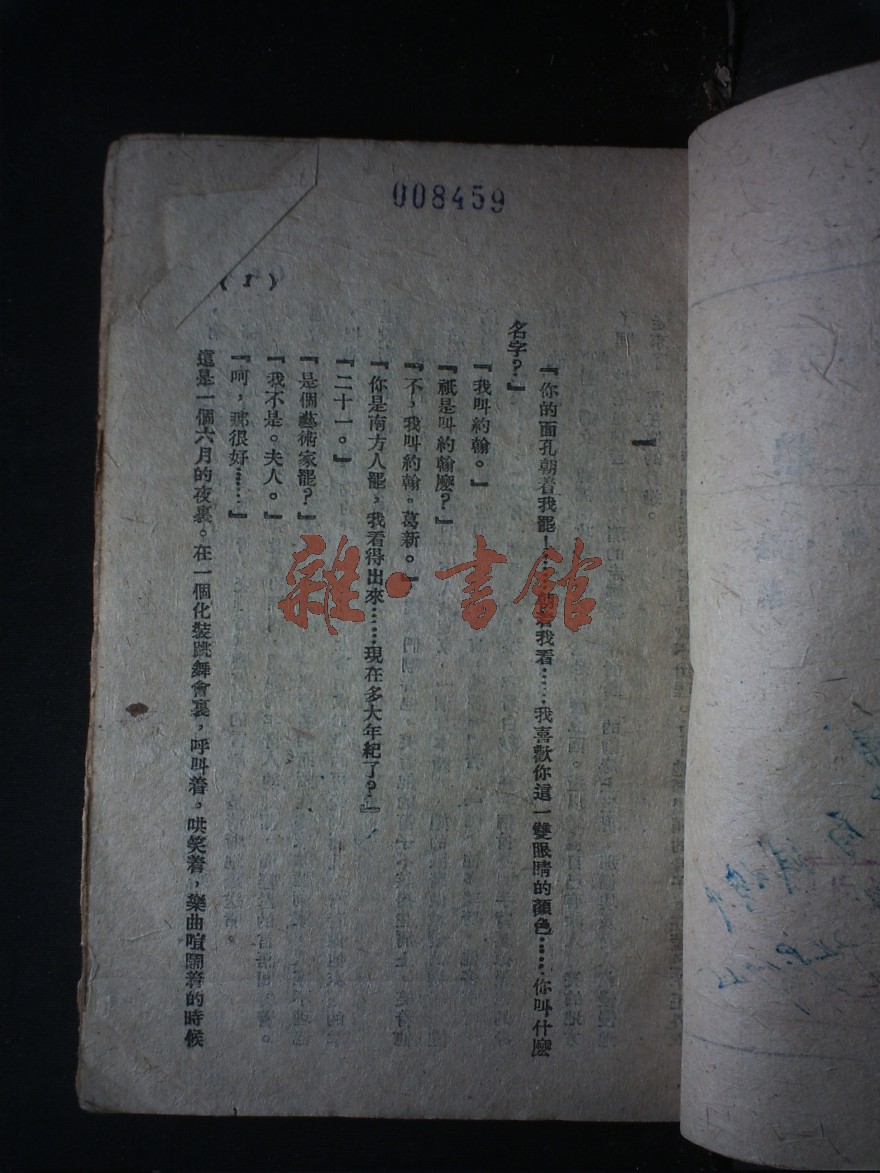 008459
(1)
一
『你的面孔朝着我罷！……着我看……我喜歡你這一雙眼睛的顏色……你叫什麼
名字？』
『我叫約翰。』
『祇是叫約翰麼？』
『不，我叫約翰。葛新。』
『你是南方人罷，我看得出來……現在多大年紀了？』
『二十一。』
『是個藝術家罷？』
『我不是。夫人。』
『呵，那很好……』
這是一個六月的夜裏。在一個化裝跳舞會裏，呼叫着，哄笑着，樂曲喧鬧着的時候
雜·書館